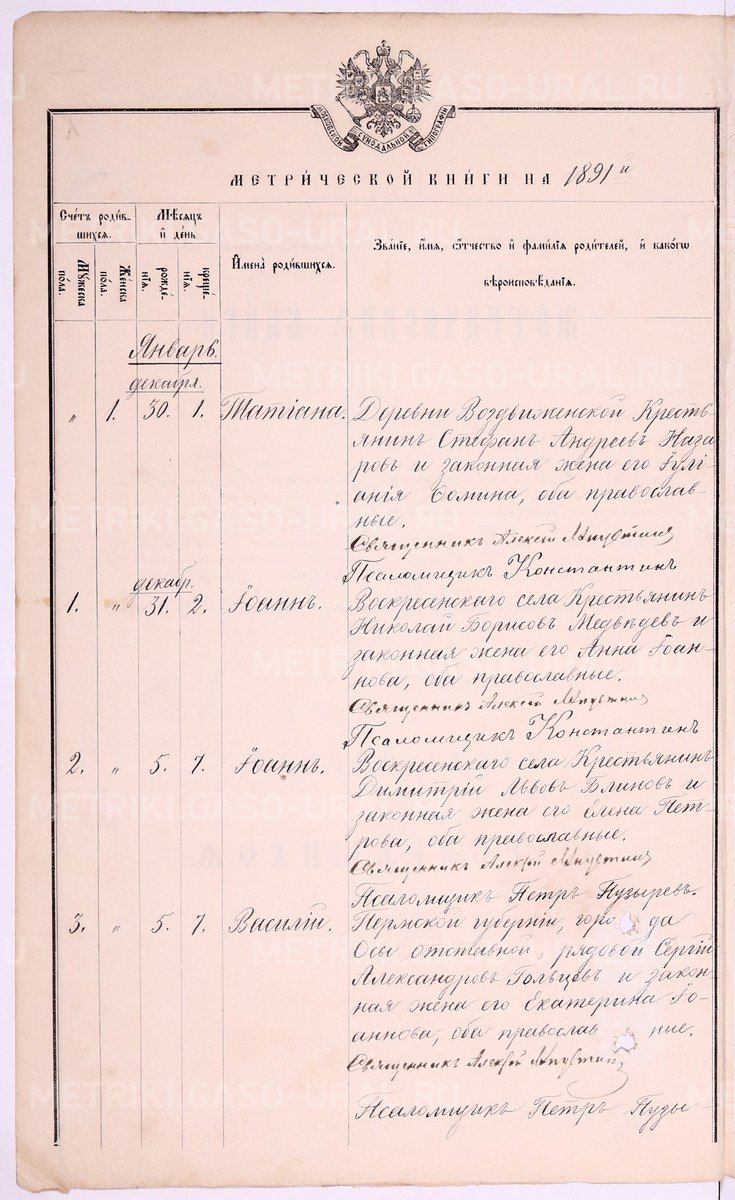 МОСКОВСКОЙ СѴНОДАЛЬНОЙ ТИПОГРАФІИ
МЕТРИ́ЧЕСКОЙ КНИ́ГИ НА 1891 й
Сче́тъ роди́в-
шихся.
Мѣ́сяцъ
и҆ де́нь
И҆мена̀ роди́вшихся.
Зва́нїе, и҆́мя, ѻ҆́тчество и҆ фами́лїя роди́телей, и҆ како́гѡ
вѣроисповѣ́данїя.
Мꙋ́жеска
по́ла.
Же́нска
по́ла.
рожде́-
нїя.
креще́-
нїя.
Январь.
декабря.
„ 1. 30. 1. Татіана. Деревни Воздвиженской Кресть-
янинъ Стефанъ Андреевъ Наза
ровъ и законная жена его Іулі-
анія Ѳомина, оба православ-
ные.
Священникъ Алексій
Псаломщикъ Константинъ
декабр.
1. „ 31. 2. Іоаннъ. Воскресенскаго села Крестьянинъ
Николай Борисовъ Медвѣдевъ и
законная жена его Анна Іоан-
нова, оба православные.
Священникъ Алексій
Псаломщикъ Константинъ
2. „ 5. 7. Іоаннъ. Воскресенскаго села Крестьянинъ
Димитрій Львовъ Блиновъ и
законная жена его Елена Пет-
рова, оба православные.
Священникъ Алексій
Псаломщикъ Петръ Пузыревъ.
3. „ 5. 7. Василій. Пермской губерніи, города
Осы отставной, рядовой Сергій
Александровъ Гольцевъ и закон-
ная жена его Екатерина Іо-
аннова, оба православ ные.
Священникъ Алексій
Псаломщикъ Петръ Пузы-
METRIKI.GASO-URAL.RU